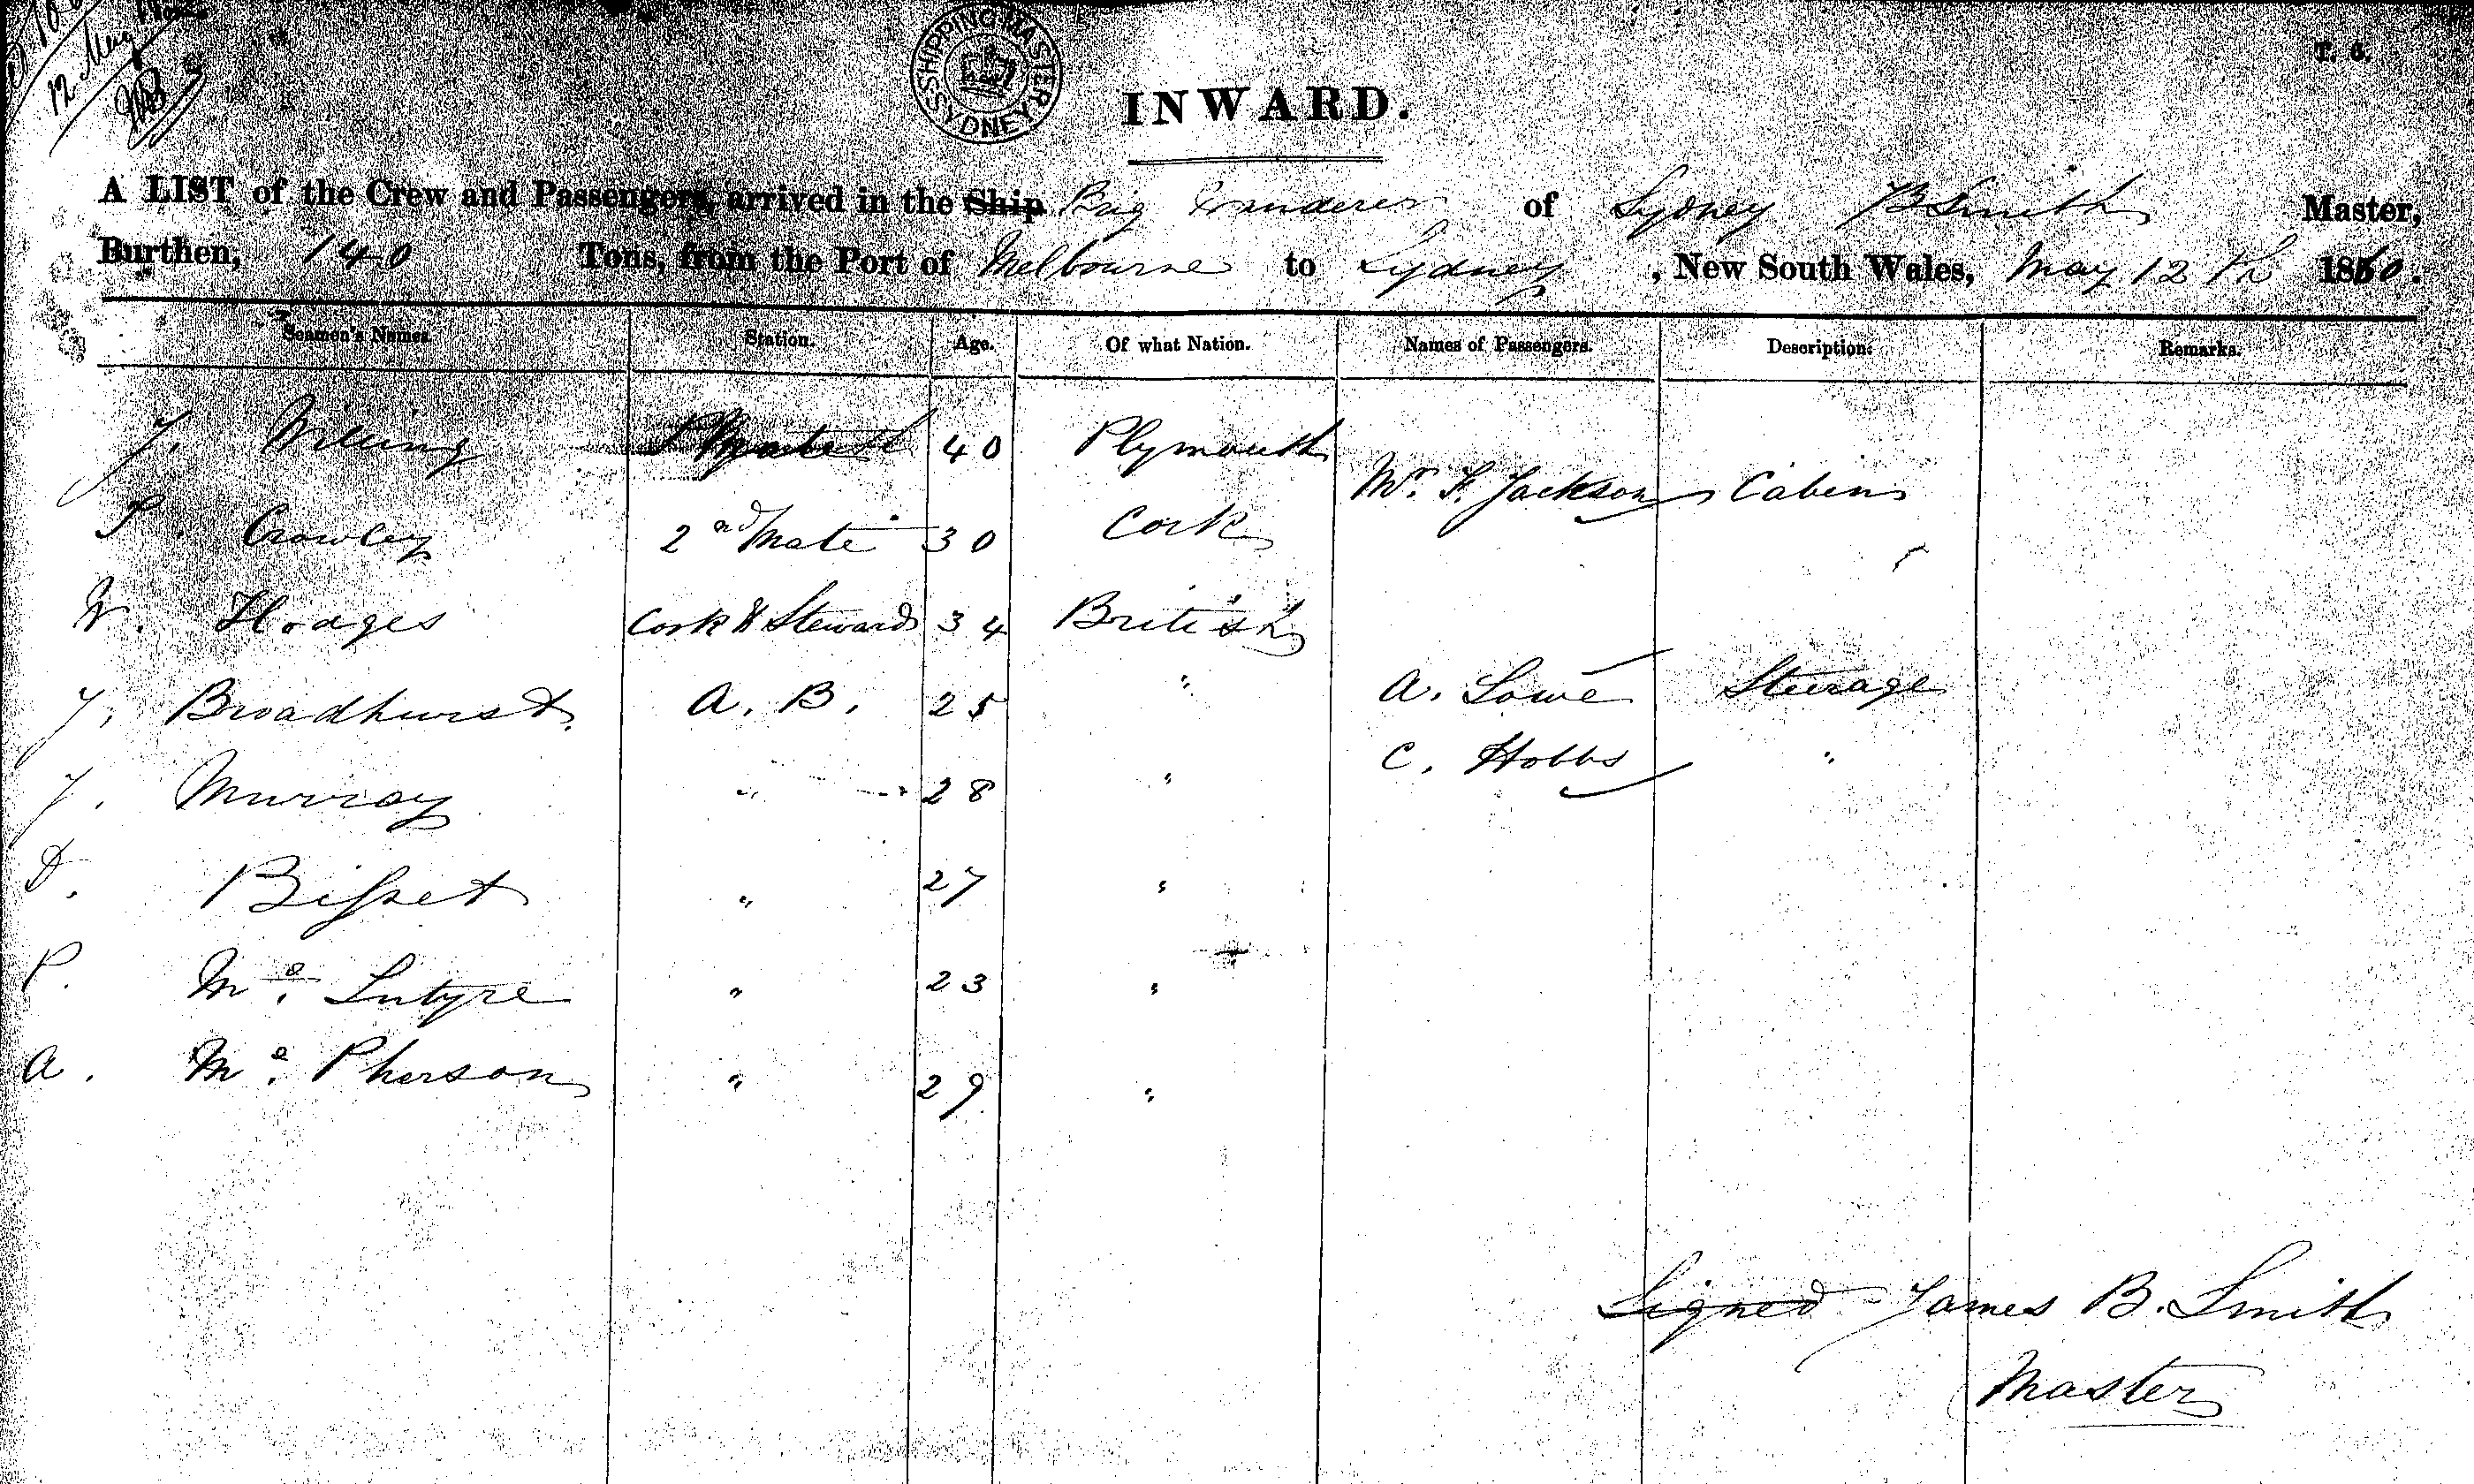 12 May
SHIPPING MASTER SYDNEY
T. 6.
INWARD.
A LIST of the Crew and Passengers, arrived in the Ship Brig Wanderer of Sydney B Smith Master,
Burthen, 140 Tons, from the Port of Melbourne to Sydney, New South Wales, May 12th 1860.
Seamen's Names. Station. Age. Of what Nation. Names of Passengers. Description. Remarks.
J. 40 Plymouth
Mr. F. Jackson Cabin
Crowley 2nd Mate 30 Cork
W. Hodges Cook & Steward 34 British
J. Broadhurst A. B. 25 " A. Lowe Steerage
J. Murray " 28 " C. Hobbs "
D. Bisset " 27 "
P. Mc. Intyre " 23 "
A. Mc. Pherson " 29 "
Signed James B. Smith
Master